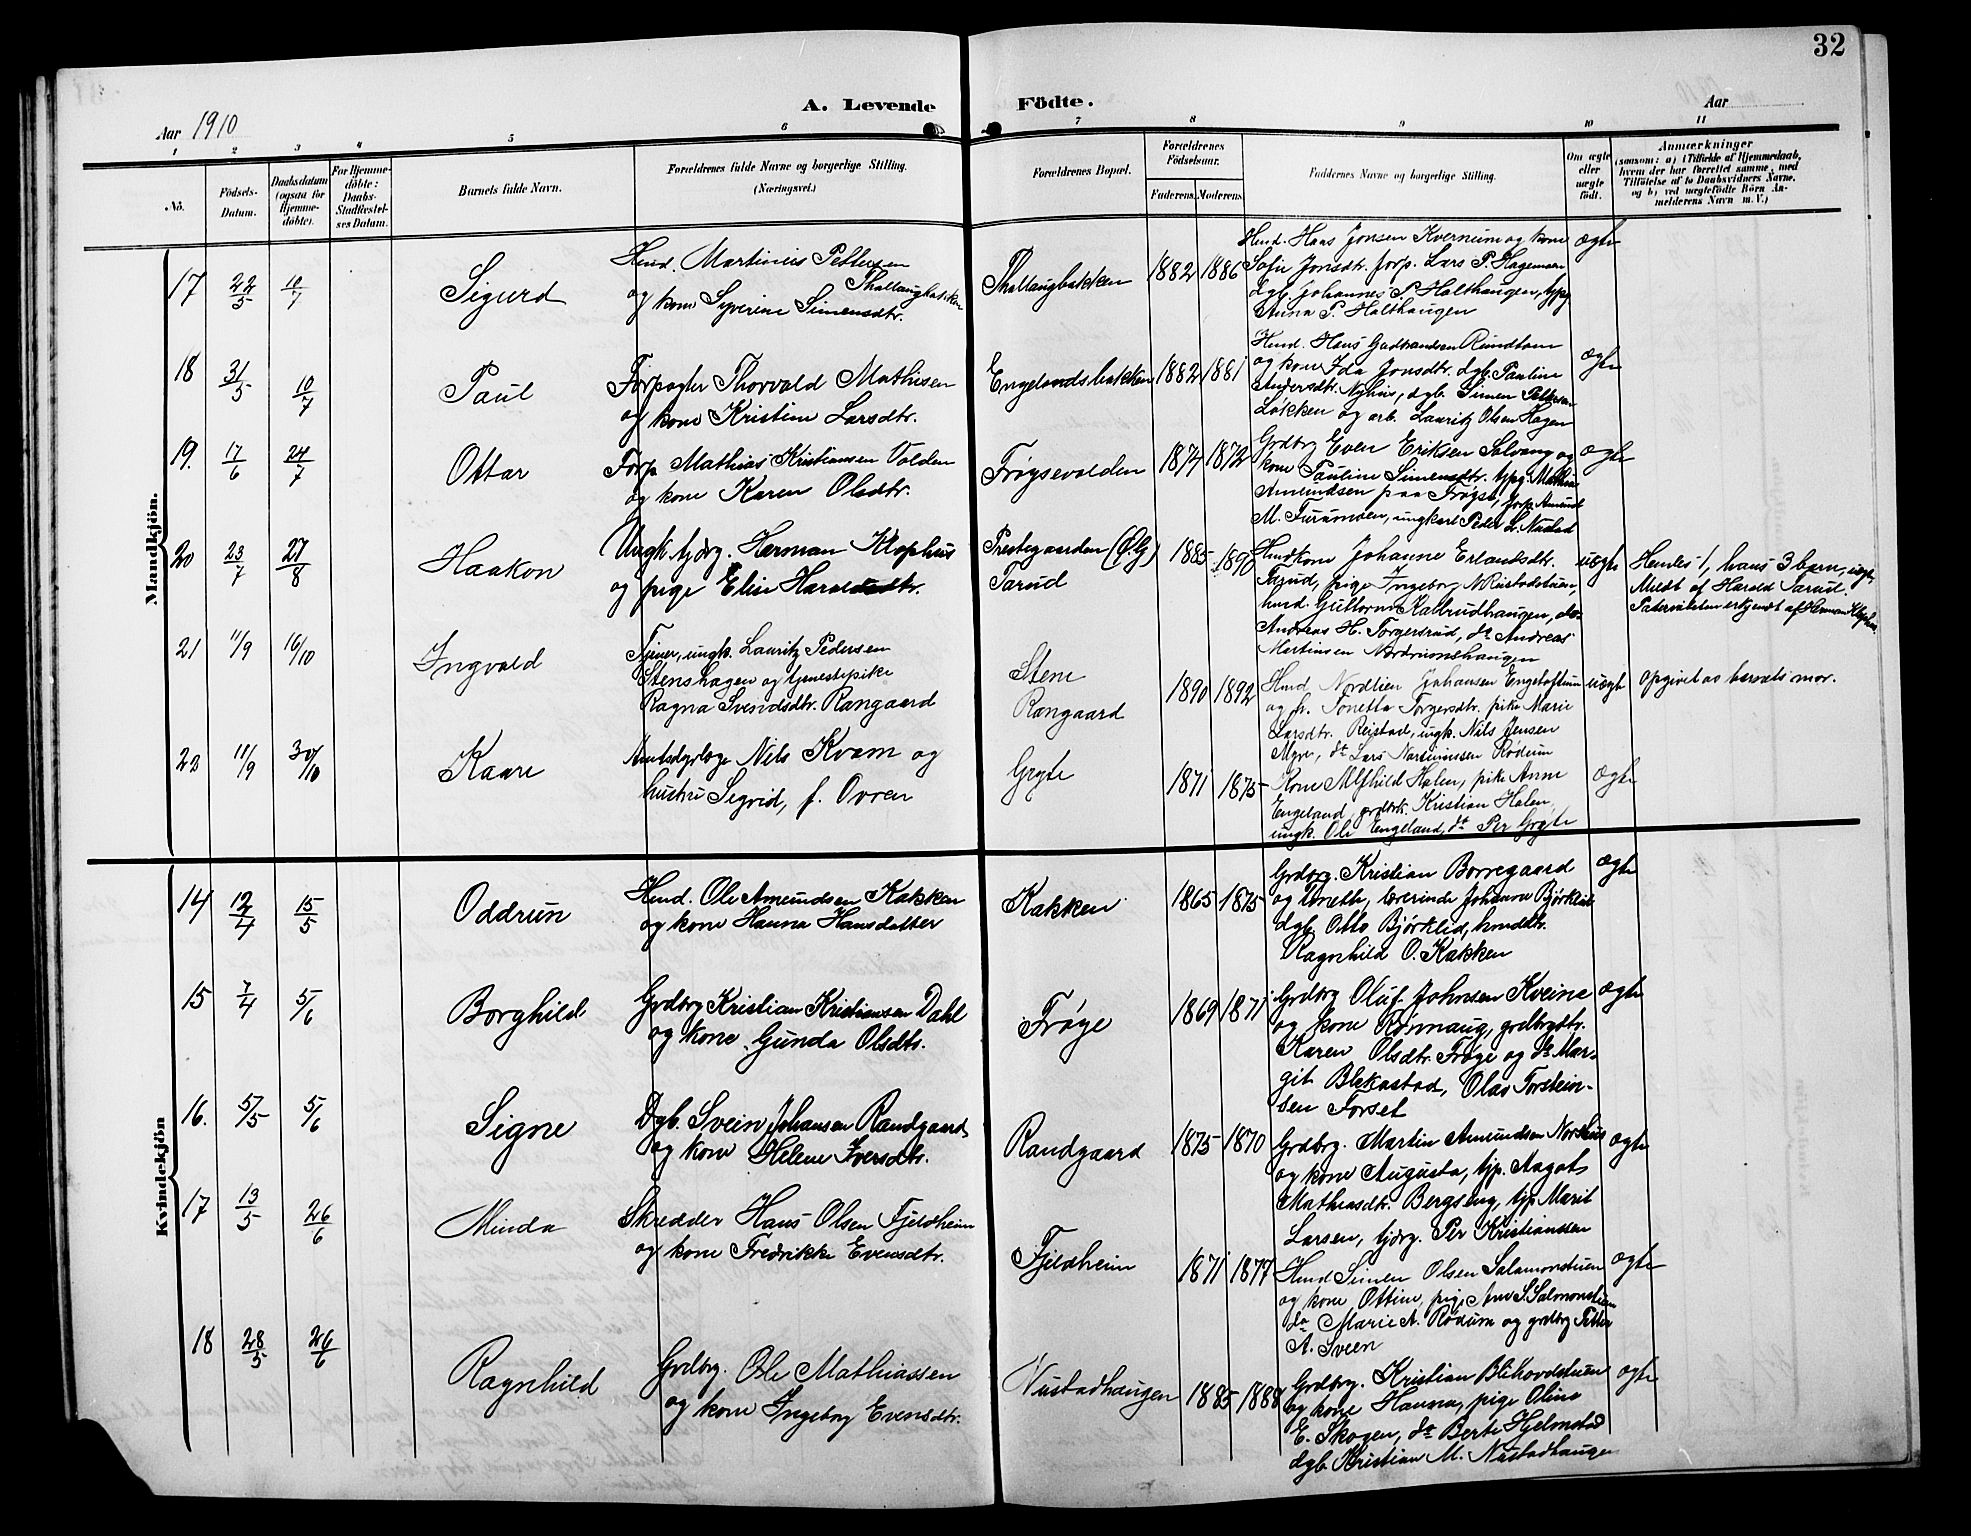 32
A. Levende Födte.
Aar 1910
Aar
1 2 3 4 5 6 7 8 9 10 11
No.
Födsels-Datum.
Daabsdatum (ogsaa for Hjemmedöbte).
For Hjemmedöbte: Daabs-Stadfæstelses Datum.
Barnets fulde Navn.
Forældrenes fulde Navne og borgerlige Stilling. (Næringsvei.)
Forældrenes Bopæl.
Forældrenes Födselsaar.
Faderens. Moderens.
Faddernes Navne og borgerlige Stilling.
Om ægte eller uægte født.
Anmærkninger
(saasom: a) i Tilfælde af Hjemmedaab, hvem der har forrettet samme, med Tilföielse af to Daabsvidners Navne, og b) ved uægtefödte Börn Anmelderens Navn m. V.)
Mandkjön.
17 22/5 10/7 Sigurd
Hmd. Martinius Pettersen Thallaugbakken
og kone Syverine Simensdtr.
Thallaugbakken 1882 1886
Hmd. Hans Jonsen Kvernum og kone
Sofie Jonsdtr. forp. Lars P. Hagemoen
dgb. Johannes P. Halthaugen, tjpg.
Anna P. Halthaugen
ægte
18 31/5 10/7 Paul
Forpagter Thorvald Mathisen
og kone Kristine Larsdtr.
Engelandsbakken 1882 1881
Hmd. Hans Gudbrandsen Rundtom
og kone Ida Jonsdtr. dgb. Pauline
Andersdtr. Nyhus, dgb. Simen Pettersen
Løkken og arb. Lauritz Olsen Hagen
ægte
19. 17/6 24/7 Ottar
Forp. Mathias Kristiansen Volden
og kone Karen Olsdtr.
Frøysevolden 1874 1872
Grdbrg Even Eriksen Solvang og
kone Pauline Simensdtr. tjpg. Mathia
Amundsen paa Frøyse, forp. Amund
M. Furumoen, ungkarl Peder L. Nustad
ægte
20 23/7 27/8 Haakon
Ungk. tjdrg. Herman Klophus
og pige Elise Haraldsdtr.
Prestegaarden (Ø.G)
Tarud
1885 1890
Hmdkone Johanne Erlandsdtr.
Tarud, pige Ingeborg N. Rustadstuen,
hmd. Guttorm Kalbrudhaugen, do
Andreas H. Torgersrud, do Andreas
Martinsen Nordrumshaugen
uægte
Hendes 1, hans 3 barn, uægte,
Meldt af Harald Tarud.
Paterniteten erkjendt af Herman Klophus.
21 11/9 16/10 Ingvald
Tjener, ungk. Lauritz Pedersen
Stenshagen og tjenestepike
Ragna Svendsdtr. Rangaard
Stene
Rangaard
1890 1892
Hmd Nordlien Johansen Engeloftum
og h. Tonetta Torgersdtr. pike Marie
Larsdtr. Reistad, ungk. Nils Jensen
Myre, do Lars Martinussen Rødum
uægte
Opgivet av barnets mor.
22 11/9 30/10 Kaare
Amtsdyrlæge Nils Kvam og
hustru Sigrid, f. Ovren
Gryte 1871 1875
Kone Alfhild Halen, pike Anne
Engeland, grdbrk. Kristian Halen,
ungk. Ole Engeland, do Per Gryte
ægte
Kvindekjön
14 12/4 15/5 Oddrun
Hmd. Ole Amundsen Kakken
og kone Hanna Hansdatter
Kakken 1865 1875
Grdbrg. Kristian Borregaard
og Anette, lærerinde Johanna Bjørklid
dgb. Otto Bjørklid, hmddtr.
Ragnhild O. Kakken
ægte
15 7/4 5/6 Borghild
Grdbrg Kristian Kristiansen Dahl
og kone Gunda Olsdtr.
Frøye 1869 1871
Grdbrg Oluf Johnsen Kveine
og kone Rønnaug, grdbrgdtr.
Karen Olsdtr. Frøye og do Mar-
git Blekastad, Olav Torstein-
sen Forset
ægte
16. 5/5 5/6 Signe
Dgb. Svein Johansen Randgaard
og kone Helene Iversdtr.
Randgaard 1875 1870
Grdbrg. Martin Amundsen Nordhus
og kone Augusta, tjp. Aagot
Mathiasdtr. Bergseng, tjp. Marit
Larsen, tjdrg. Per Kristianssen
ægte
17 13/5 26/6 Minda
Skredder Hans Olsen Fjeldheim
og kone Fredrikke Evensdtr.
Fjeldheim 1871 1877
Hmd Simen Olsen Salamonstuen
og kone Ottine, pige Ane S. Salmonstuen
do Marie A. Rødum og grdbrg Petter
A. Sveen
ægte
18 28/5 26/6 Ragnhild
Grdbrg. Ole Mathiassen
og kone Ingeborg Evensdtr.
Nustadhaugen 1885 1888
Grdbrg. Kristian Blihovdstuen
og kone Hanna, pige Oline
E. Skogen, do Berte Hjelmstad
dgb. Kristian M. Nustadhaugen
ægte